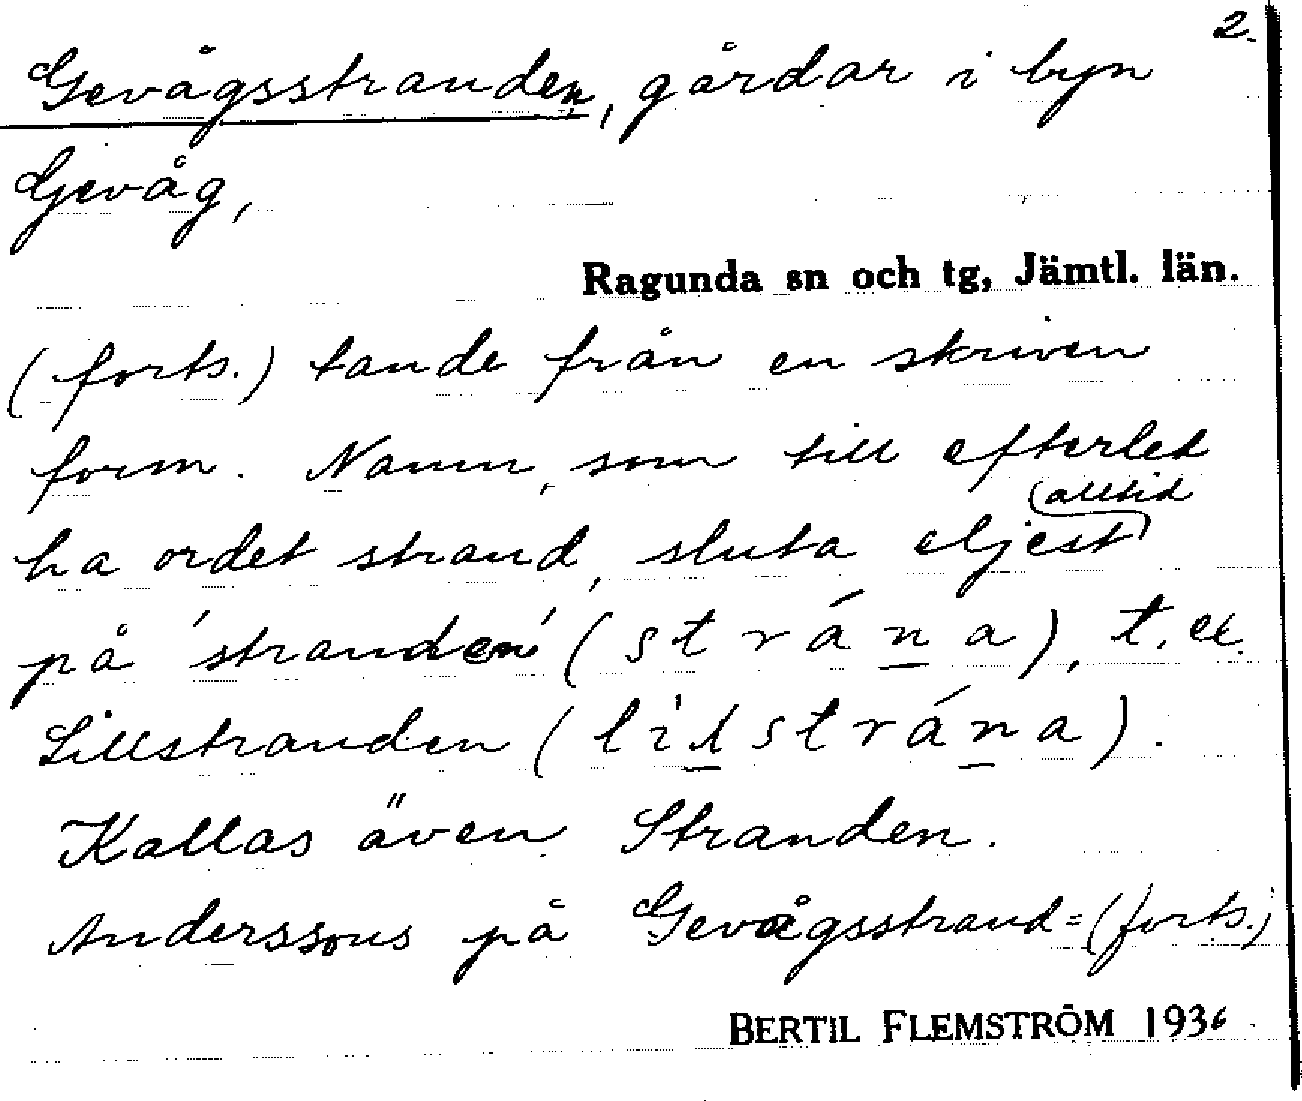 2.
Gevågsstranden, gårdar i byn
Gevåg,
Ragunda sn och tg, Jämtl. län.
(forts.) tande från en skriven
form. Namn, som till efterled
(alltid
ha ordet strand, sluta eljest
på 'stranden' (strána), t.ex.
Lillstranden (li̍lstrána).
Kallas även Stranden.
Anderssons på Gevågsstrand= (forts.)
BERTIL FLEMSTRÖM 1936